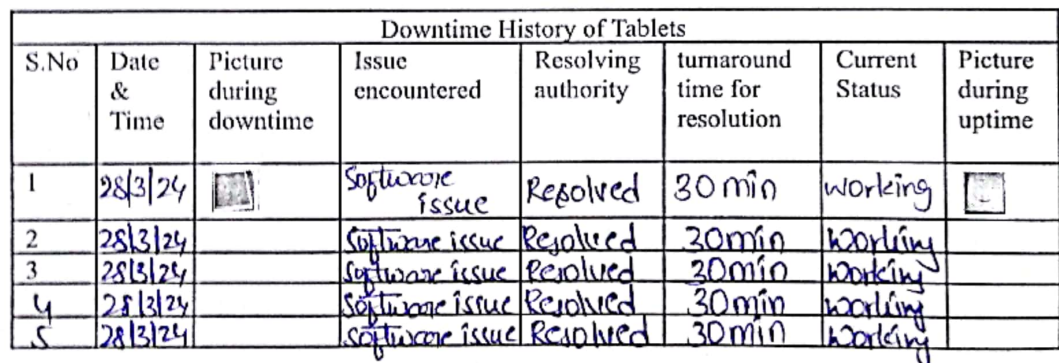 Downtime History of Tablets
S.No Date & Time Picture during downtime Issue encountered Resolving authority turnaround time for resolution Current Status Picture during uptime
1 28/3/24 Software issue Resolved 30 min working
2 28/3/24 Software issue Resolved 30min Working
3 28/3/24 Software issue Resolved 30min Working
4 28/3/24 Software issue Resolved 30min Working
5 28/3/24 Software issue Resolved 30min Working